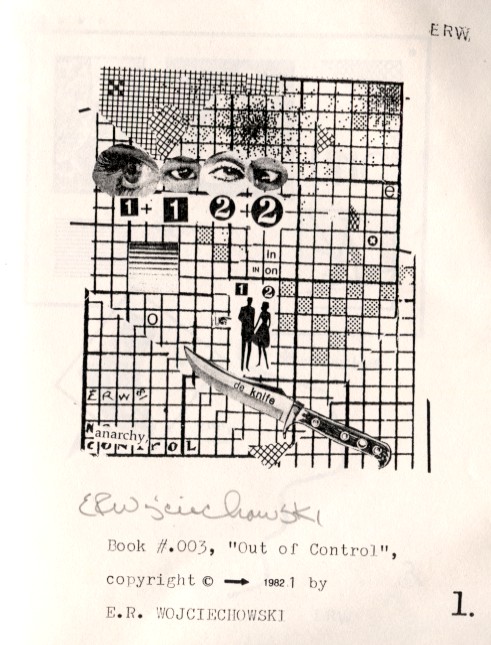 ERW
1 + 1 2 + 2
e
in
IN on
1 2
O
de knife
ERW
anarchy,
CONTROL
ERWojciechowski
Book #.003, "Out of Control",
copyright © → 1982.1 by
E.R. WOJCIECHOWSKI
1.